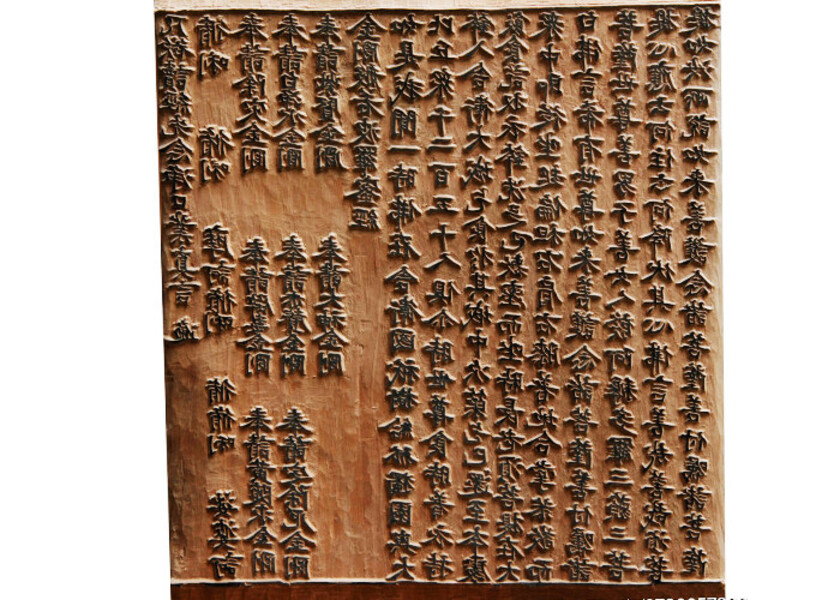 凡欲讀經先念淨口業真言遍
脩唎 脩唎 摩訶脩唎 脩脩唎 娑婆訶
奉請除災金剛 奉請辟毒金剛 奉請黃隨求金剛
奉請白淨水金剛 奉請赤聲金剛 奉請定除厄金剛
奉請紫賢金剛 奉請大神金剛
金剛般若波羅蜜經
如是我聞一時佛在舍衛國祇樹給孤獨園與大
比丘眾千二百五十人俱尒時世尊食時著衣持
鉢入舍衛大城乞食於其城中次第乞已還至本處
飯食訖收衣鉢洗足已敷座而坐時長老須菩提在大
眾中即從坐起偏袒右肩右膝著地合掌恭敬而
白佛言希有世尊如來善護念諸菩薩善付囑諸
菩薩世尊善男子善女人發阿耨多羅三藐三菩
提心應云何住云何降伏其心佛言善哉善哉須菩
提如汝所說如來善護念諸菩薩善付囑諸菩薩